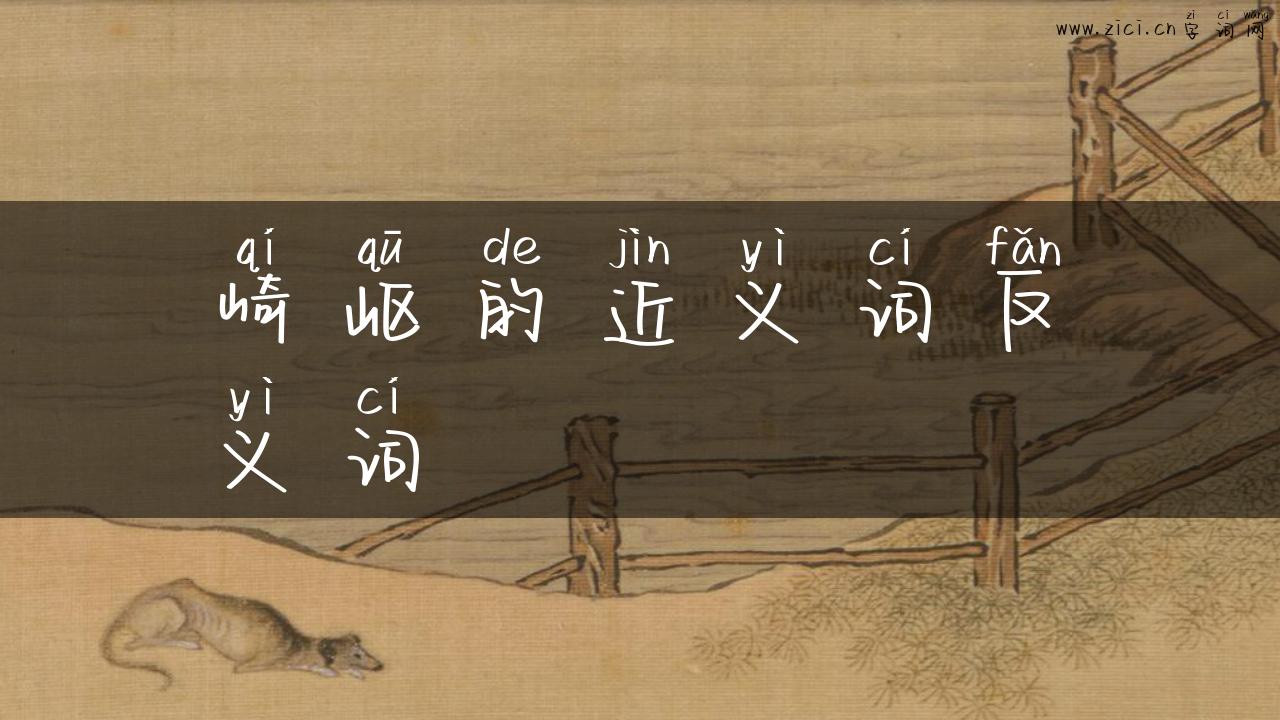 zì cí wǎng
www.zici.cn 字词网
qí qū de jìn yì cí fǎn
崎岖的近义词反
yì cí
义词